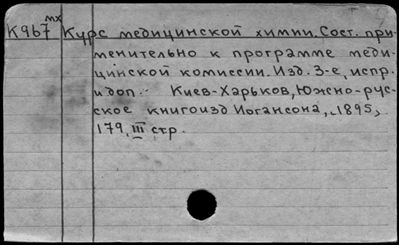 мх
К967 Курс медицинской химии. Сост. при-
менительно к программе меди-
цинской комиссии. Изд. 3-е, испр.
и доп. Киев-Харьков, Южно-рус-
ское книгоизд Иогансона, 1895,
179, III стр.